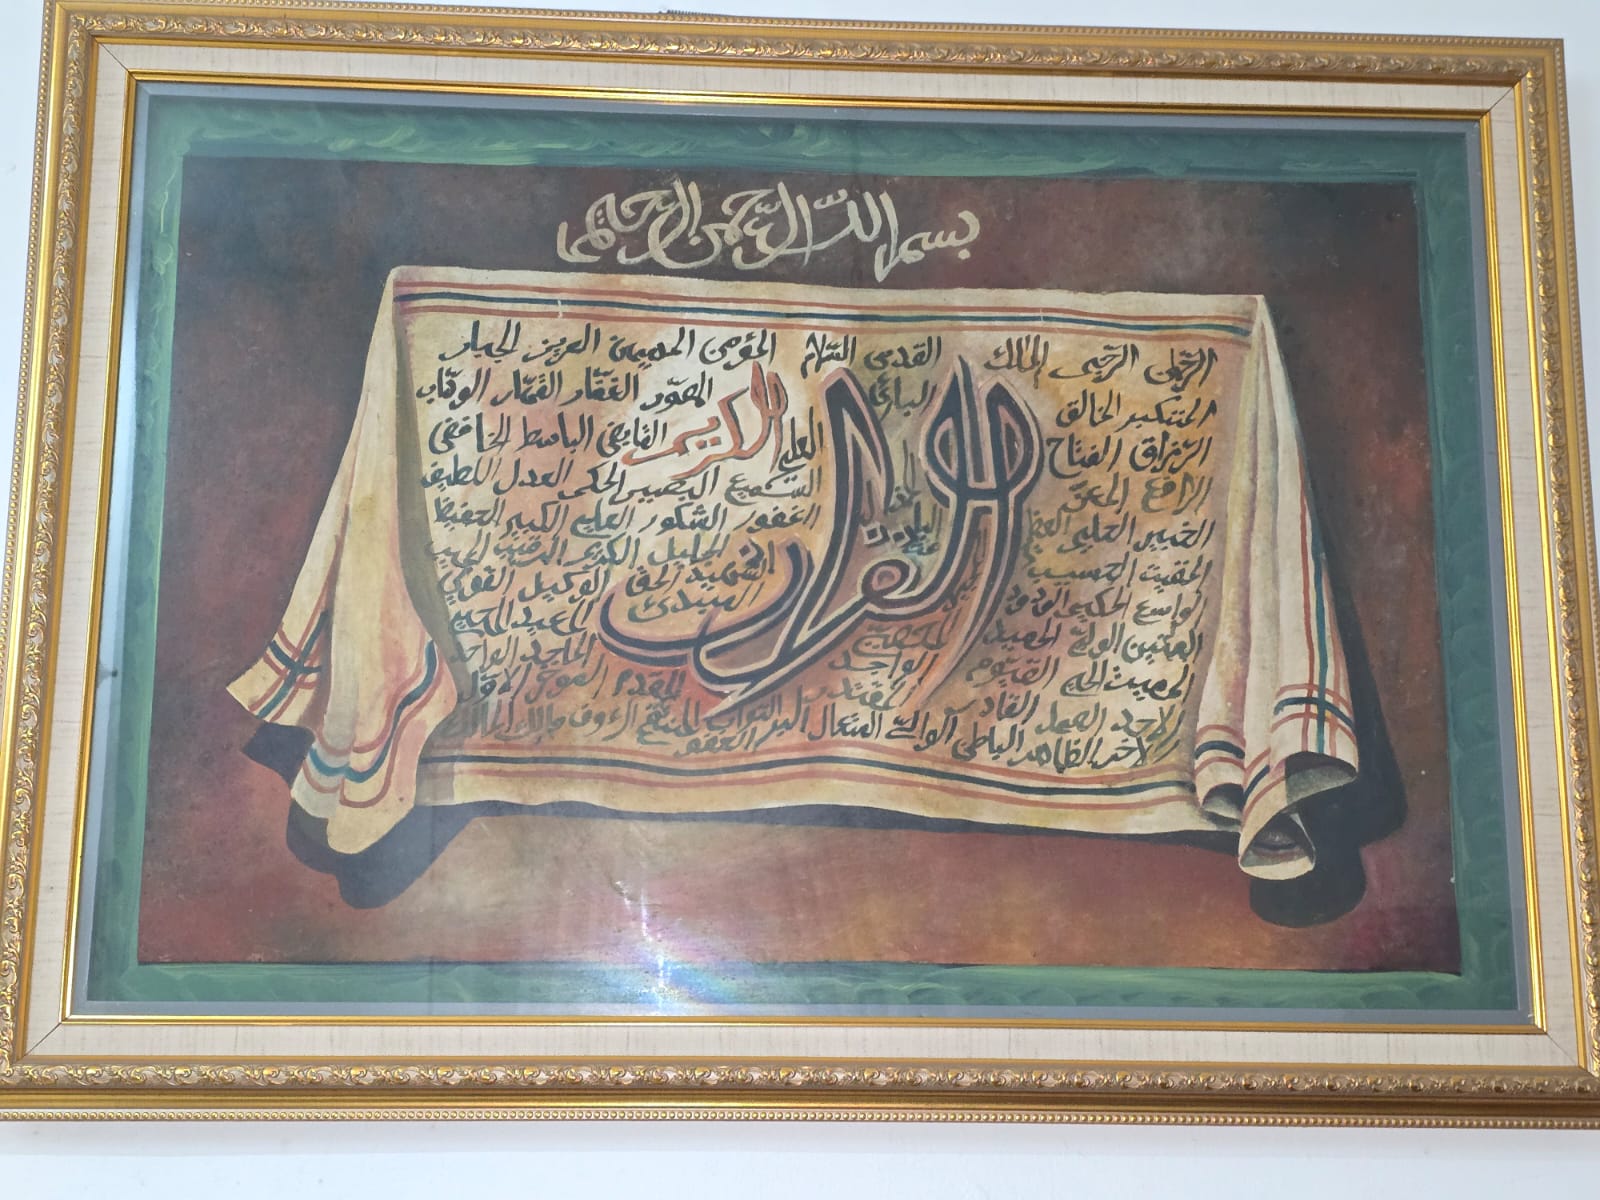 بسم الله الرحمن الرحيم
الرحمن الرحيم الملك القدس السلام المؤمن المهيمن العزيز الجبار
المتكبر الخالق البارئ المصور الغفار القهار الوهاب
الرزاق الفتاح العليم القابض الباسط الخافض
الرافع المعز السميع البصير الحكم العدل اللطيف
الخبير الحليم الغفور الشكور العلي الكبير الحفيظ
المقيت الحسيب الجليل الكريم الرقيب المجيب
الواسع الحكيم الودود الشهيد الحق الوكيل القوي
المتين الولي الحميد المحصي المبدئ المعيد المحيي
المميت الحي القيوم الواجد الماجد الواحد
الاحد الصمد القادر المقتدر المقدم المؤخر الاول
الاخر الظاهر الباطن الوالي المتعال البر التواب المنتقم العفو الرؤوف مالك الملك
القرآن
الكريم